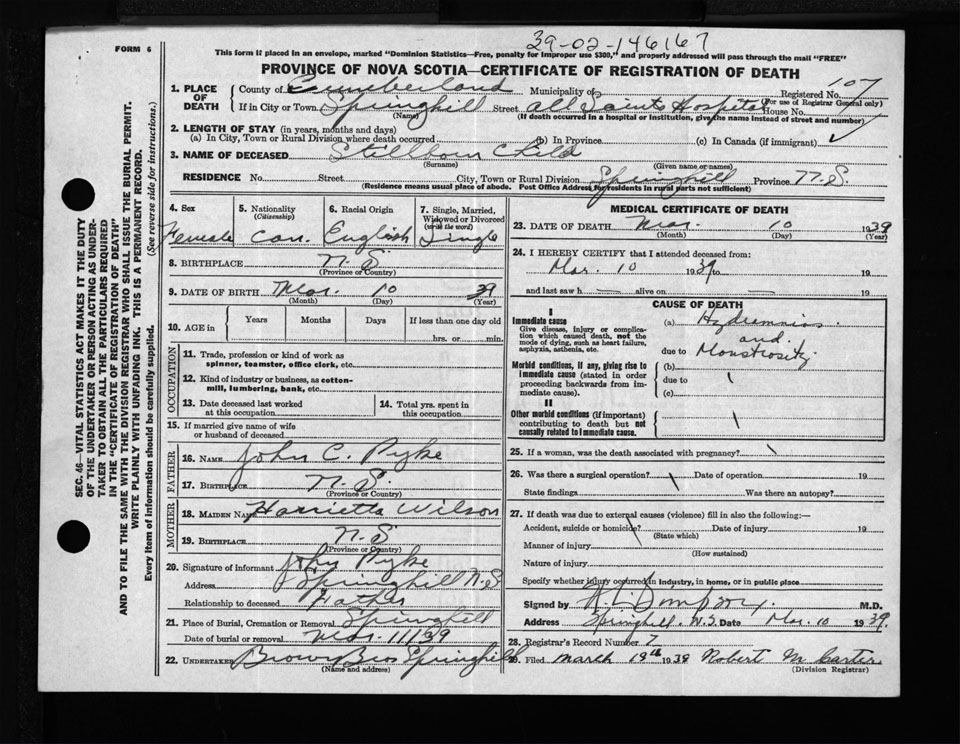 FORM 6
39-02-146167
This form if placed in an envelope, marked "Dominion Statistics—Free, penalty for improper use $300," and properly addressed will pass through the mail "FREE"
PROVINCE OF NOVA SCOTIA—CERTIFICATE OF REGISTRATION OF DEATH
1. PLACE OF DEATH
County of Cumberland Municipality of Registered No. 107
(For use of Registrar General only)
If in City or Town Springhill Street All Saints Hospital House No.
(Name) (If death occurred in a hospital or institution, give the name instead of street and number)
2. LENGTH OF STAY (in years, months and days)
(a) In City, Town or Rural Division where death occurred (b) In Province (c) In Canada (if immigrant)
3. NAME OF DECEASED Stillborn Child
(Surname) (Given name or names)
RESIDENCE No. Street City, Town or Rural Division Springhill Province N.S.
(Residence means usual place of abode. Post Office Address for residents in rural parts not sufficient)
4. Sex 5. Nationality 6. Racial Origin 7. Single, Married,
(Citizenship) Widowed or Divorced
(write the word)
Female Can. English Single
8. BIRTHPLACE N.S.
(Province or Country)
9. DATE OF BIRTH Mar. 10 39
(Month) (Day) (Year)
10. AGE in Years Months Days If less than one day old
hrs. or min.
OCCUPATION
11. Trade, profession or kind of work as
spinner, teamster, office clerk, etc.
12. Kind of industry or business, as cotton-
mill, lumbering, bank, etc.
13. Date deceased last worked
at this occupation
14. Total yrs. spent in
this occupation
15. If married give name of wife
or husband of deceased
FATHER
16. NAME John C. Pyke
17. BIRTHPLACE N.S.
(Province or Country)
MOTHER
18. MAIDEN NAME Harrietta Wilson
19. BIRTHPLACE N.S
(Province or Country)
20. Signature of informant John Pyke
Address Springhill N.S
Relationship to deceased Father
21. Place of Burial, Cremation or Removal Springhill
Date of burial or removal Mar. 11/39
22. UNDERTAKER Brown Bros Springhill
(Name and address)
MEDICAL CERTIFICATE OF DEATH
23. DATE OF DEATH Mar. 10 1939
(Month) (Day) (Year)
24. I HEREBY CERTIFY that I attended deceased from:
Mar. 10 1939 to 19
and last saw h alive on 19
CAUSE OF DEATH
I
Immediate cause
Give disease, injury or complica-
tion which caused death, not the
mode of dying, such as heart failure,
asphyxia, asthenia, etc.
(a) Hydramnios
and
due to Monstrosity
Morbid conditions, if any, giving rise to
immediate cause (stated in order
proceeding backwards from im-
mediate cause).
(b)
due to
(c)
II
Other morbid conditions (if important)
contributing to death but not
causally related to immediate cause.
25. If a woman, was the death associated with pregnancy?
26. Was there a surgical operation? Date of operation 19
State findings Was there an autopsy?
27. If death was due to external causes (violence) fill in also the following:—
Accident, suicide or homicide? Date of injury 19
(State which)
Manner of injury
(How sustained)
Nature of injury
Specify whether injury occurred in industry, in home, or in public place
Signed by M.D.
Address Springhill. N.S. Date Mar. 10 1939.
28. Registrar's Record Number 7
29. Filed March 19th 1939 Robert M Carter
(Division Registrar)
SEC. 46—VITAL STATISTICS ACT MAKES IT THE DUTY
OF THE UNDERTAKER OR PERSON ACTING AS UNDER-
TAKER TO OBTAIN ALL THE PARTICULARS REQUIRED
IN THE "CERTIFICATE OF REGISTRATION OF DEATH"
AND TO FILE THE SAME WITH THE DIVISION REGISTRAR WHO SHALL ISSUE THE BURIAL PERMIT.
WRITE PLAINLY WITH UNFADING INK. THIS IS A PERMANENT RECORD.
Every item of information should be carefully supplied. (See reverse side for instructions.)